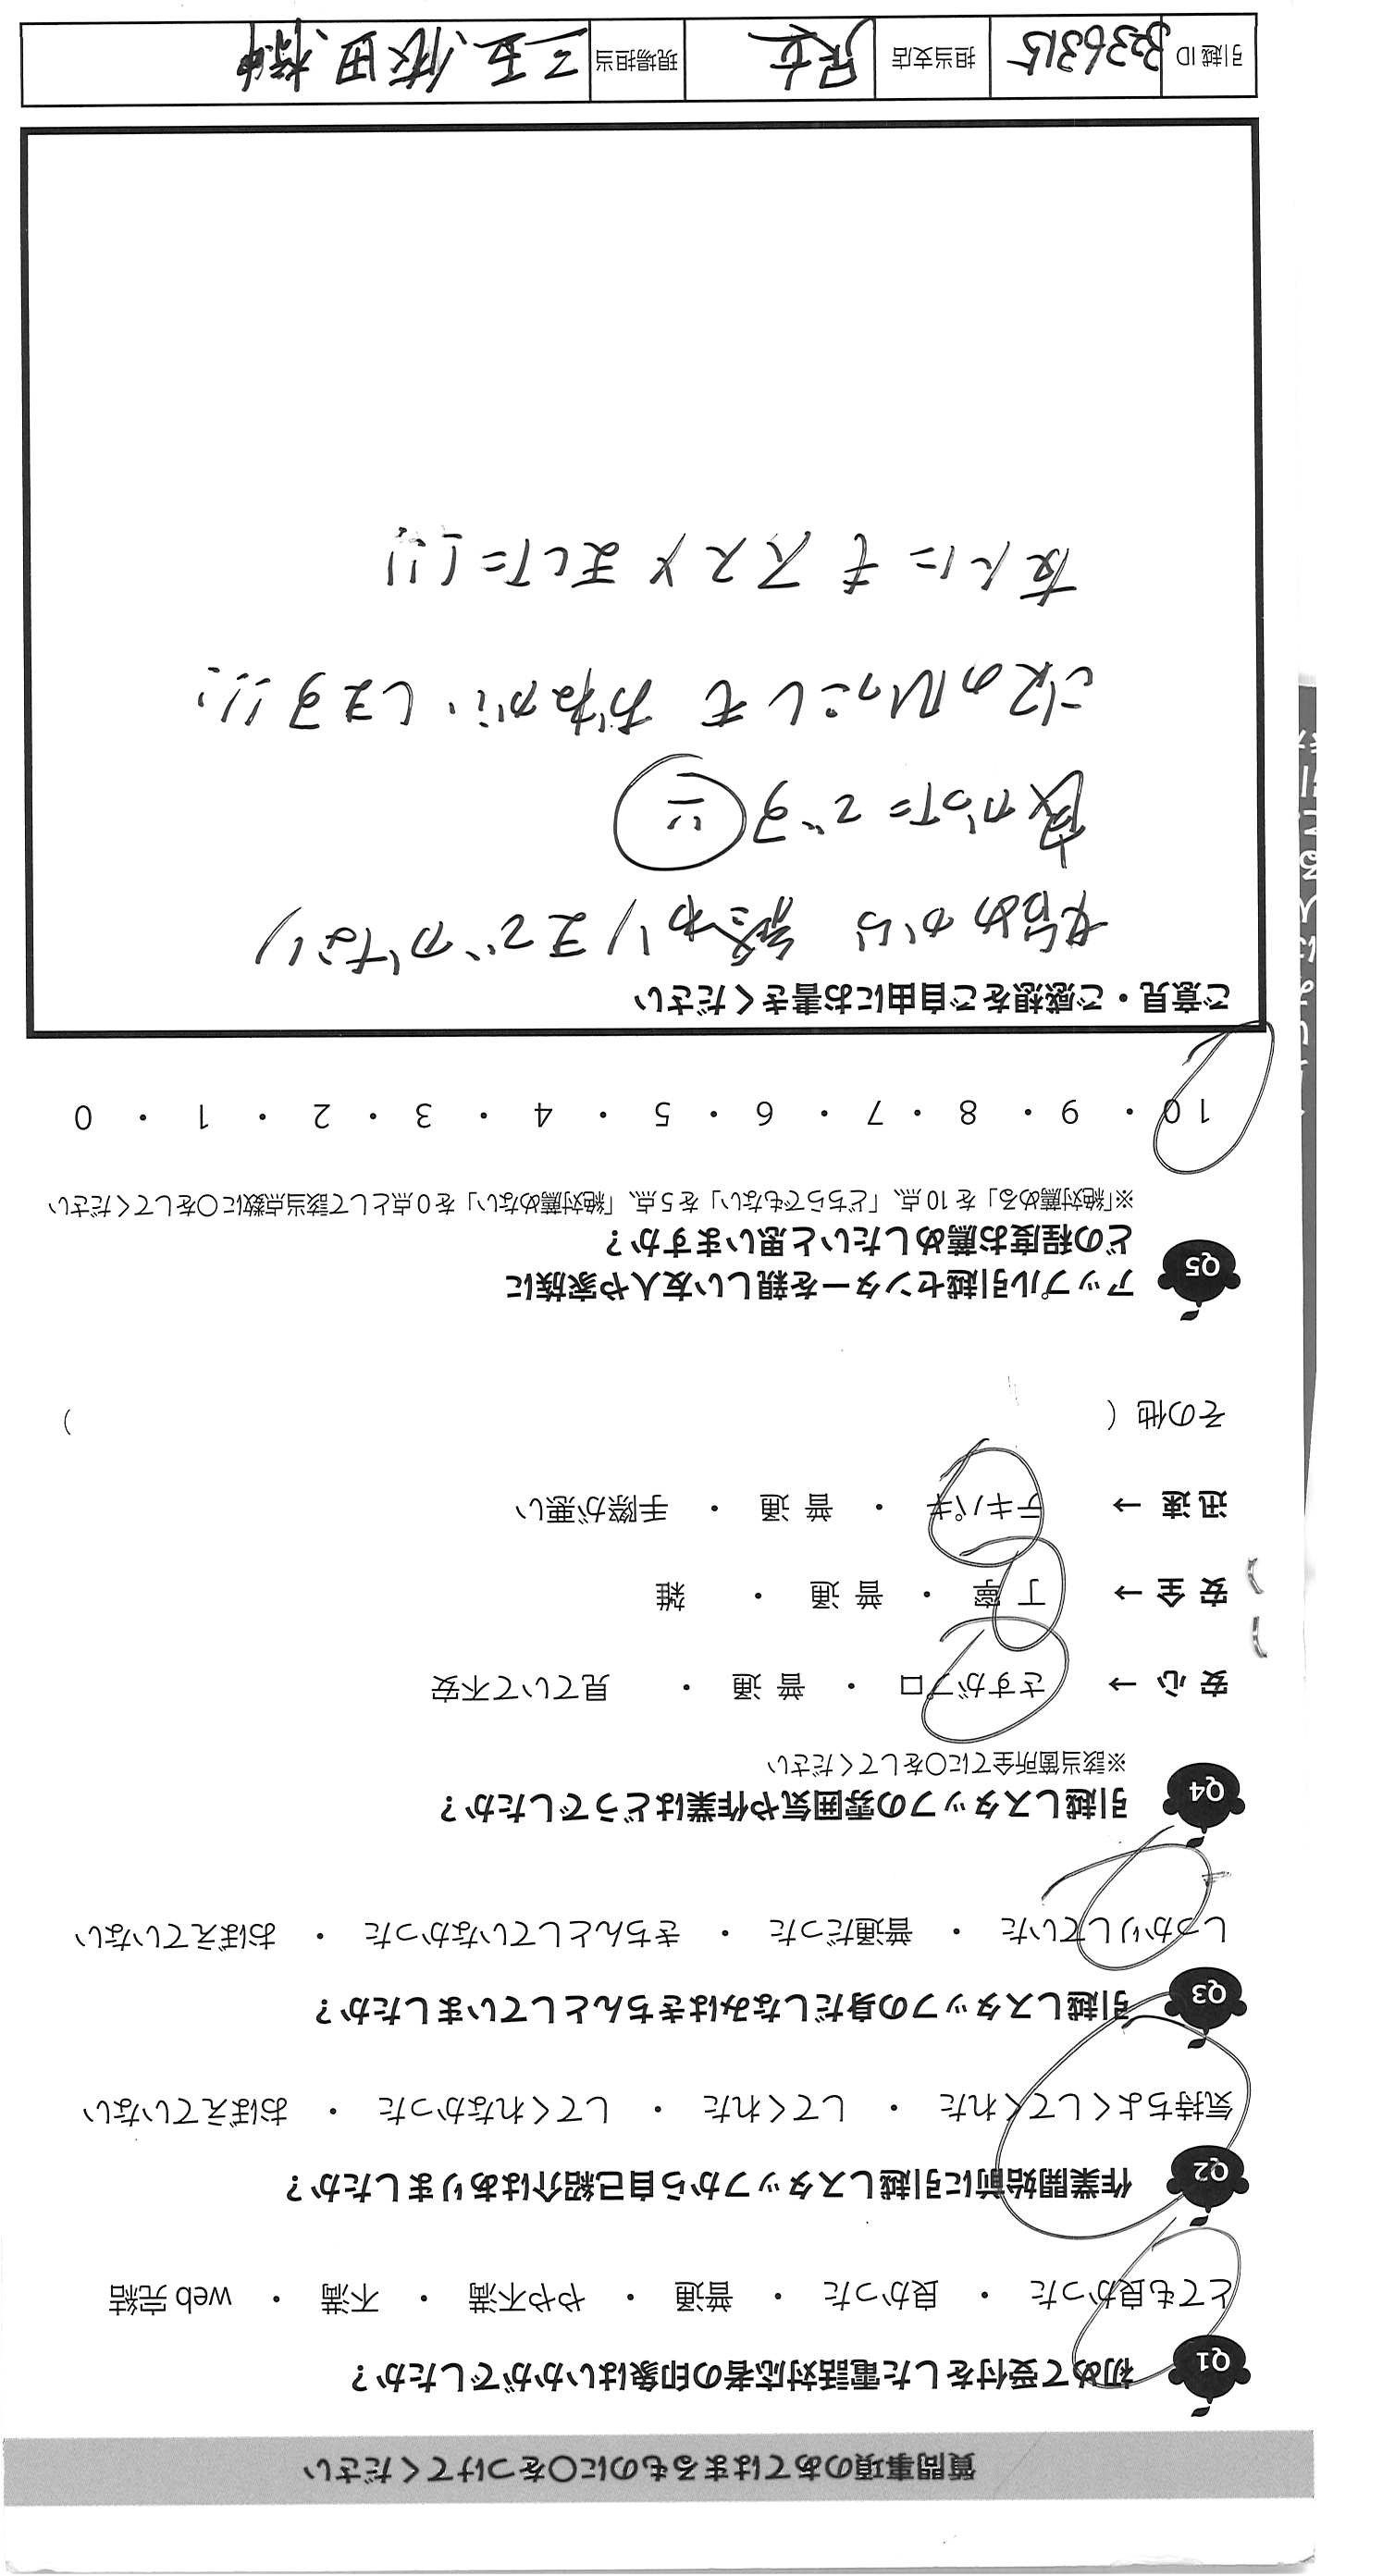 質問事項のあてはまるものに○をつけてください
Q1 初めて受付をした電話対応者の印象はいかがでしたか？
とても良かった ・ 良かった ・ 普通 ・ やや不満 ・ 不満 ・ web 完結
Q2 作業開始前に引越しスタッフから自己紹介はありましたか？
気持ちよくしてくれた ・ してくれた ・ してくれなかった ・ おぼえていない
Q3 引越しスタッフの身だしなみはきちんとしていましたか？
しっかりしていた ・ 普通だった ・ きちんとしていなかった ・ おぼえていない
Q4 引越しスタッフの雰囲気や作業はどうでしたか？
※該当箇所全てに○をしてください
安 心 → さすがプロ ・ 普 通 ・ 見ていて不安
安 全 → 丁 寧 ・ 普 通 ・ 雑
迅 速 → テキパキ ・ 普 通 ・ 手際が悪い
その他（ ）
Q5 アップル引越センターを親しい友人や家族に
どの程度お薦めしたいと思いますか？
※「絶対薦める」を 10 点、「どちらでもない」を 5 点、「絶対薦めない」を 0 点として該当点数に○をしてください
10 ・ 9 ・ 8 ・ 7 ・ 6 ・ 5 ・ 4 ・ 3 ・ 2 ・ 1 ・ 0
ご意見・ご感想をご自由にお書きください
始めから 終わりまで かなり
良かったです
次のひっこしも おねがいします!!!
友人にも ススメましたー!!!
引越 ID 3336315 担当支店 足立 現場担当